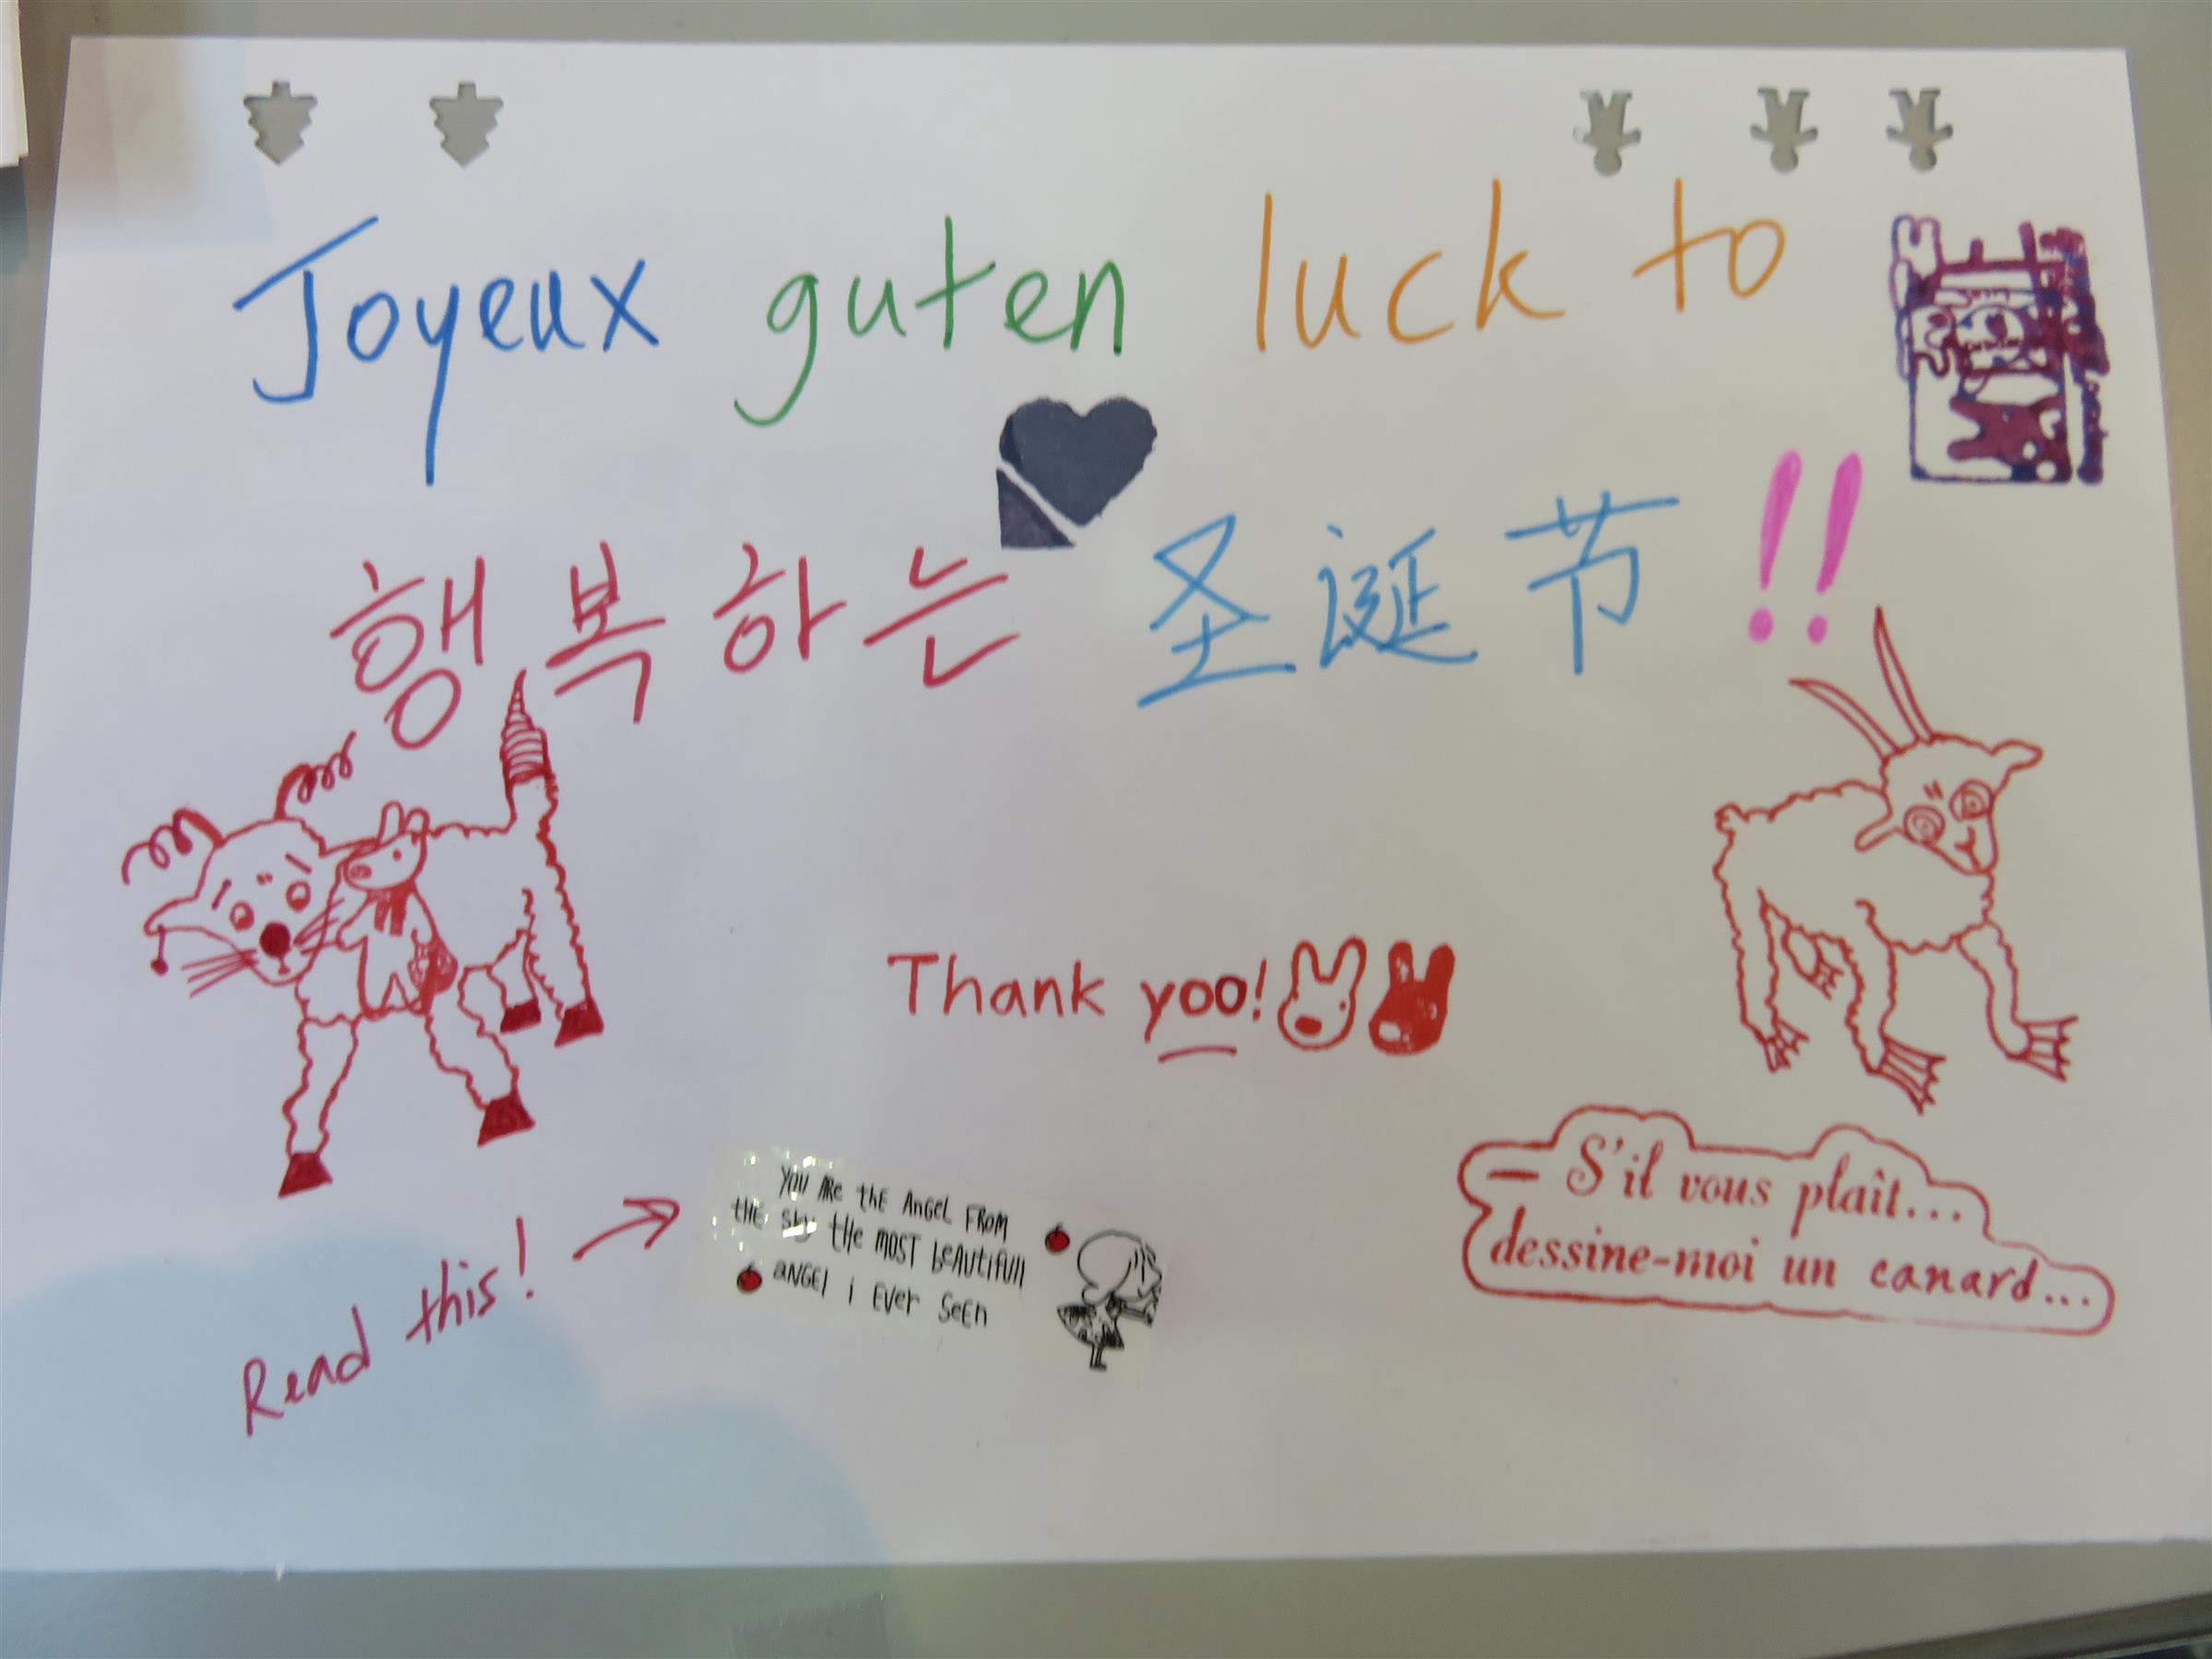 Joyeux guten luck to
행복하는 圣诞节!!
Thank yoo!
Read this!
YOU ARE tHE ANGEL FROM
tHE sky tHE MOST bEAUtifUll
ANGEl i EVEr SEEn
– S'il vous plaît...
dessine-moi un canard...